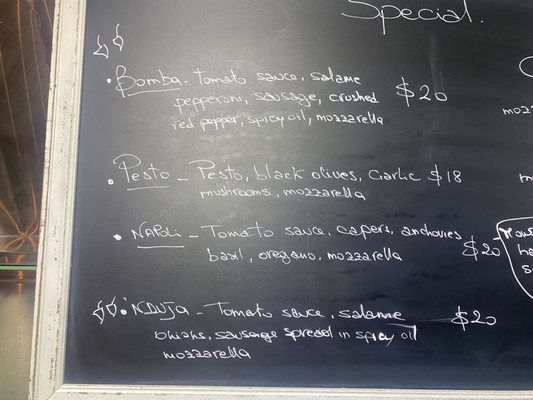 Special.
• Bomba - Tomato sauce, salame
pepperoni, sausage, crushed $20
red pepper, spicy oil, mozzarella
• Pesto - Pesto, black olives, Garlic $18
mushrooms, mozzarella
• NAPOLI - Tomato sauce, capers, anchovies
basil, oregano, mozzarella $20
• NDUJA - Tomato sauce, salame $20
onions, sausage spread in spicy oil
mozzarella